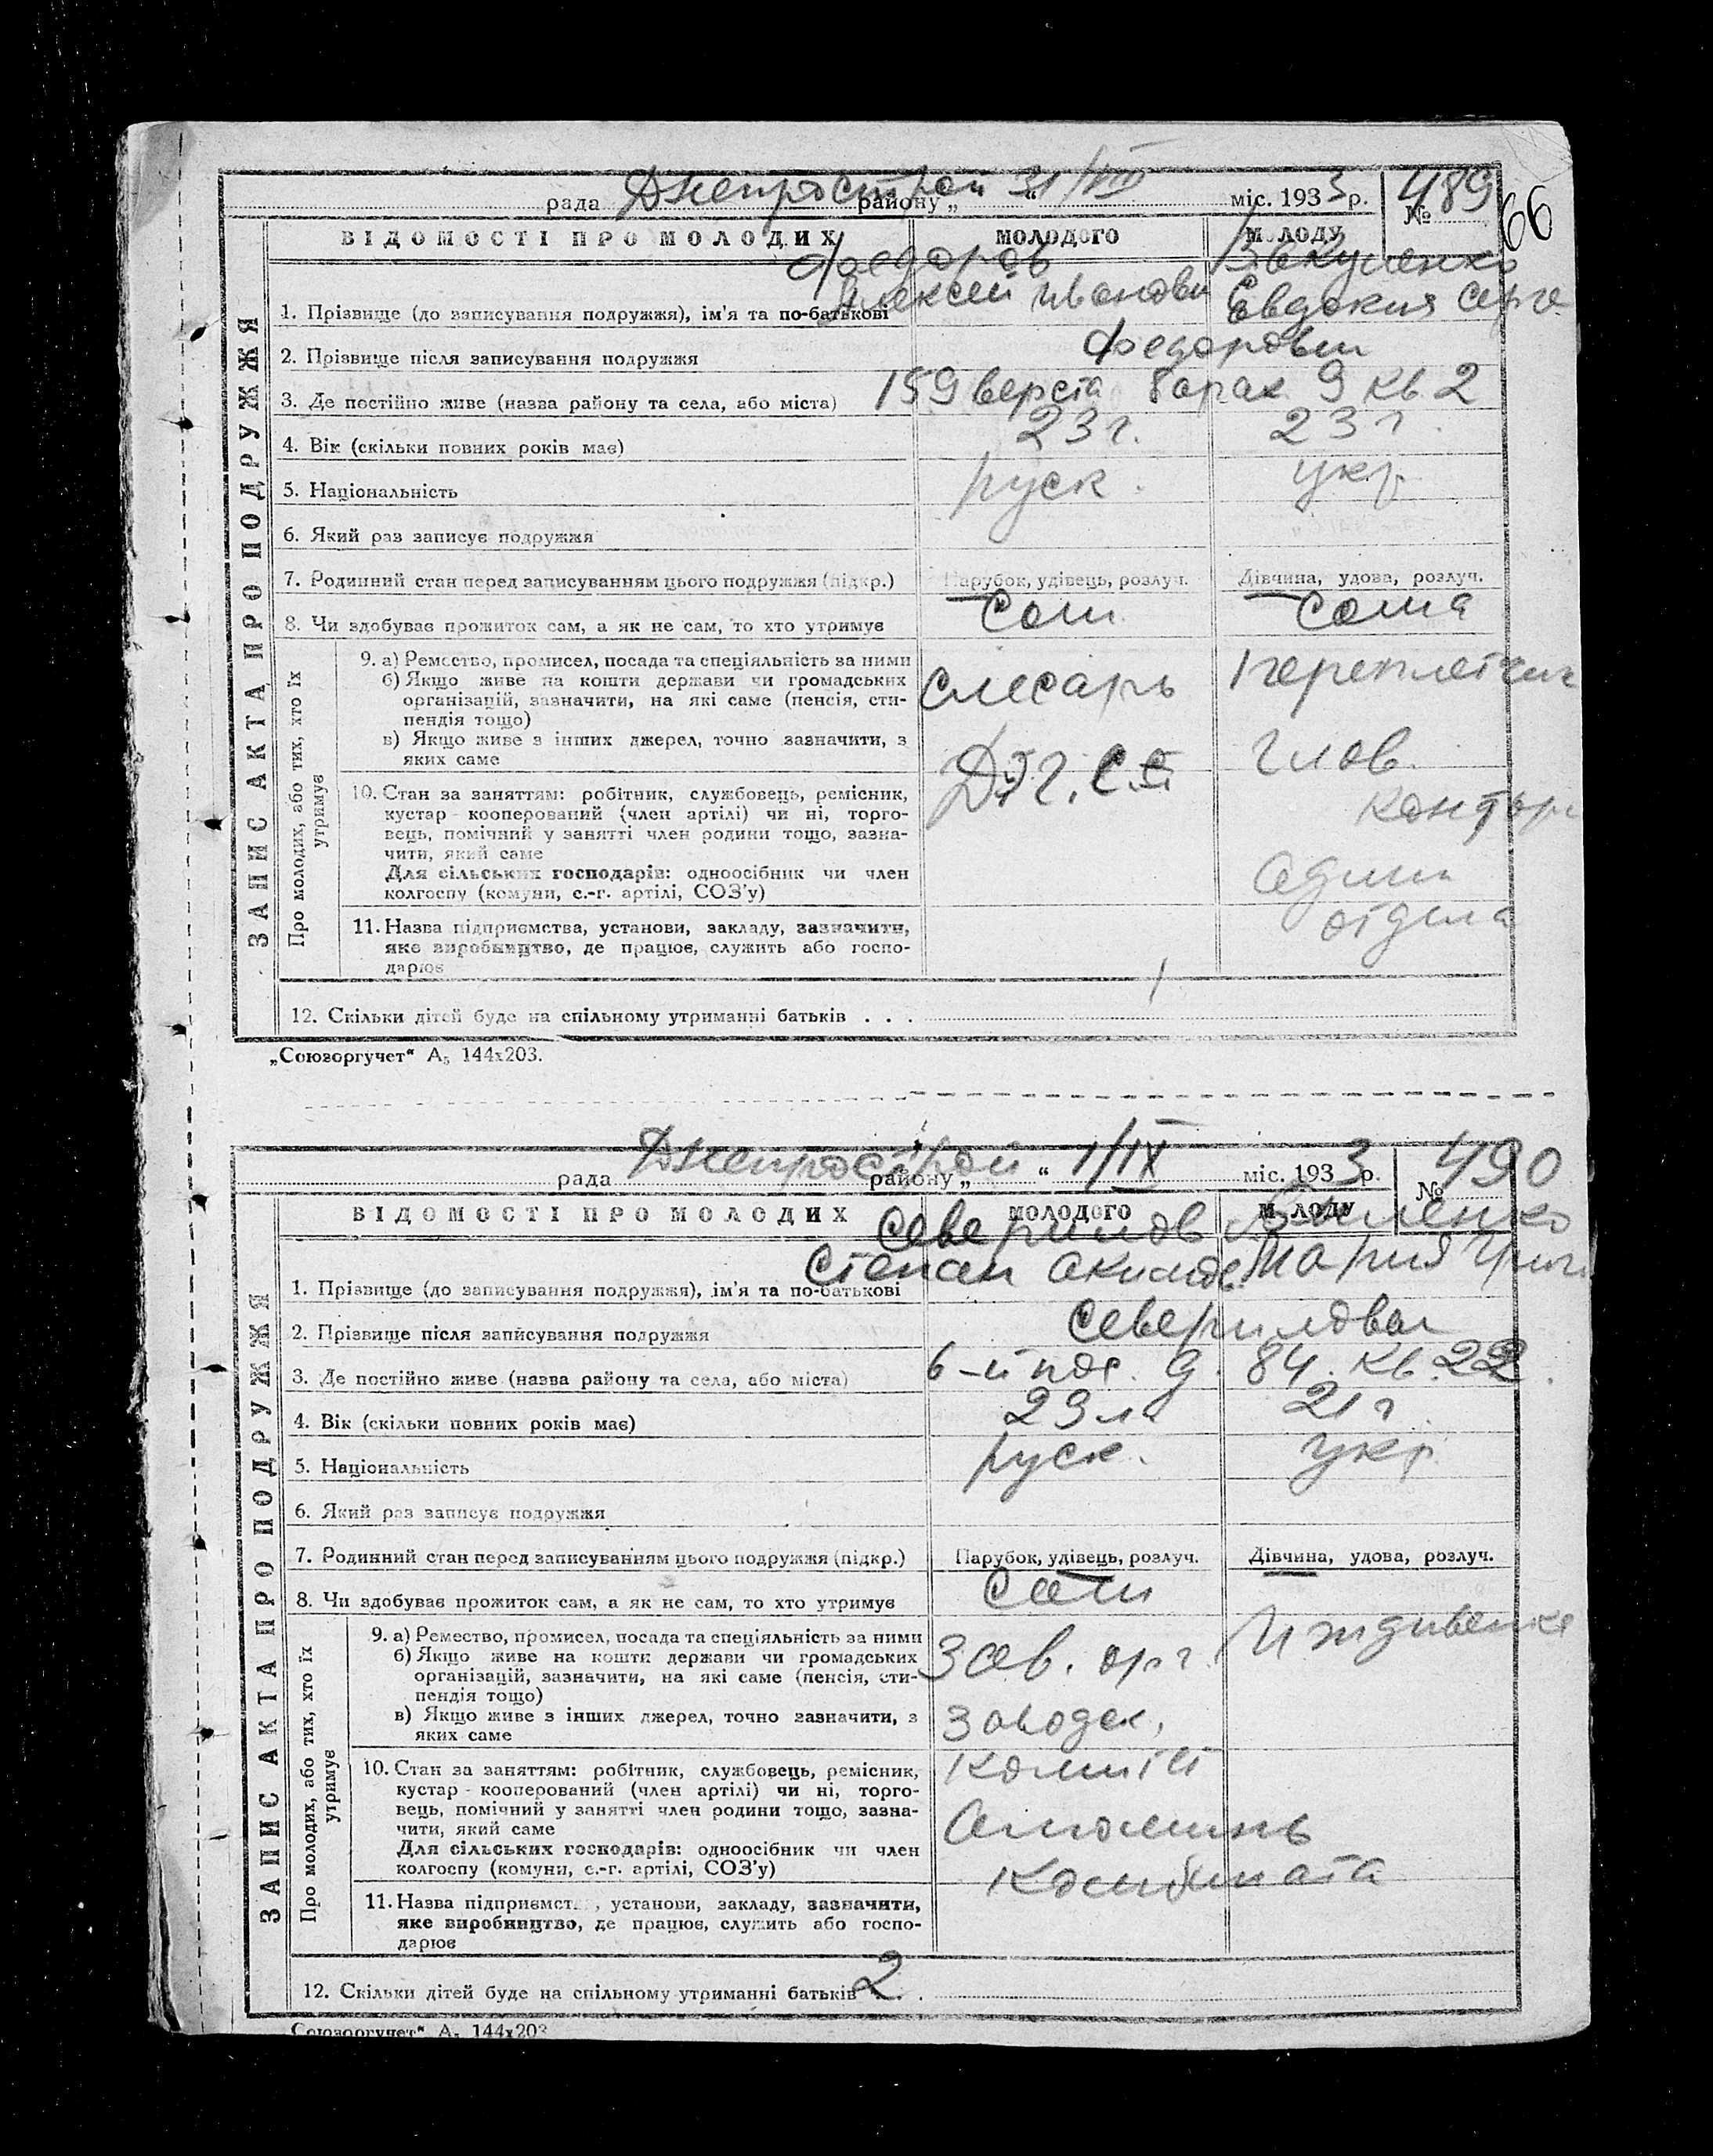 рада Днепрострой району „ “ 31/VIII міс. 1933 р. № 489
66
ВІДОМОСТІ ПРО МОЛОДИХ МОЛОДОГО МОЛОДУ
Федоров
Алексей Иванови Евдокия Серге
1. Прізвище (до записування подружжя), ім'я та по-батькові
2. Прізвище після записування подружжя Федоровы
3. Де постійно живе (назва району та села, або міста) 159 верста барак 9 кв 2
4. Вік (скільки повних років має) 23 г. 23 г
5. Національність руск. укр.
6. Який раз записує подружжя
7. Родинний стан перед записуванням цього подружжя (підкр.) Парубок, удівець, розлуч. Дівчина, удова, розлуч.
8. Чи здобуває прожиток сам, а як не сам, то хто утримує сам сама
ЗАПИС АКТА ПРО ПОДРУЖЖЯ
Про молодих, або тих, хто їх утримує
9. а) Ремество, промисел, посада та спеціяльність за ними
б) Якщо живе на кошти держави чи громадських
організацій, зазначити, на які саме (пенсія, сти-
пендія тощо)
в) Якщо живе з інших джерел, точно зазначити, з
яких саме
слесарь переплетчик
глав.
контор
отдела
10. Стан за заняттям: робітник, службовець, ремісник,
кустар - кооперований (член артілі) чи ні, торго-
вець, помічний у занятті член родини тощо, зазна-
чити, який саме
Для сільських господарів: одноосібник чи член
колгоспу (комуни, с.-г. артілі, СОЗ'у)
11. Назва підприємства, установи, закладу, зазначити,
яке виробництво, де працює, служить або госпо-
дарює
12. Скільки дітей буде на спільному утриманні батьків . . .
„Союзоргучет“ А₅ 144х203.
рада Днепрострой району „ “ 1/IX міс. 1933 р. № 490
ВІДОМОСТІ ПРО МОЛОДИХ МОЛОДОГО МОЛОДУ
Северилов
Степан Мария Григ
1. Прізвище (до записування подружжя), ім'я та по-батькові
2. Прізвище після записування подружжя
3. Де постійно живе (назва району та села, або міста) 6-й пос. д. 84. кв. 22.
4. Вік (скільки повних років має) 21 г
5. Національність руск. укр
6. Який раз записує подружжя
7. Родинний стан перед записуванням цього подружжя (підкр.) Парубок, удівець, розлуч. Дівчина, удова, розлуч.
8. Чи здобуває прожиток сам, а як не сам, то хто утримує сам
ЗАПИС АКТА ПРО ПОДРУЖЖЯ
Про молодих, або тих, хто їх утримує
9. а) Ремество, промисел, посада та спеціяльність за ними
б) Якщо живе на кошти держави чи громадських
організацій, зазначити, на які саме (пенсія, сти-
пендія тощо)
в) Якщо живе з інших джерел, точно зазначити, з
яких саме
Зав. орг. Иждивенка
заводск.
комитет
комбината
10. Стан за заняттям: робітник, службовець, ремісник,
кустар - кооперований (член артілі) чи ні, торго-
вець, помічний у занятті член родини тощо, зазна-
чити, який саме
Для сільських господарів: одноосібник чи член
колгоспу (комуни, с.-г. артілі, СОЗ'у)
11. Назва підприємст , установи, закладу, зазначити,
яке виробництво, де працює, служить або госпо-
дарює
12. Скільки дітей буде на спільному утриманні батьків 2 . .
Союзоргучет“ А₅ 144х203